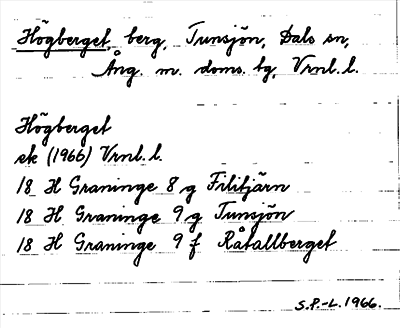 Högberget, berg, Tunsjön, Dals sn,
Ång. m. doms. tg, Vrnl. l.
Högberget
ek (1966) Vrnl. l.
18 H Graninge 8 g Filitjärn
18 H Graninge 9 g Tunsjön
18 H Graninge 9 f Råtallberget
S.P.-L. 1966.